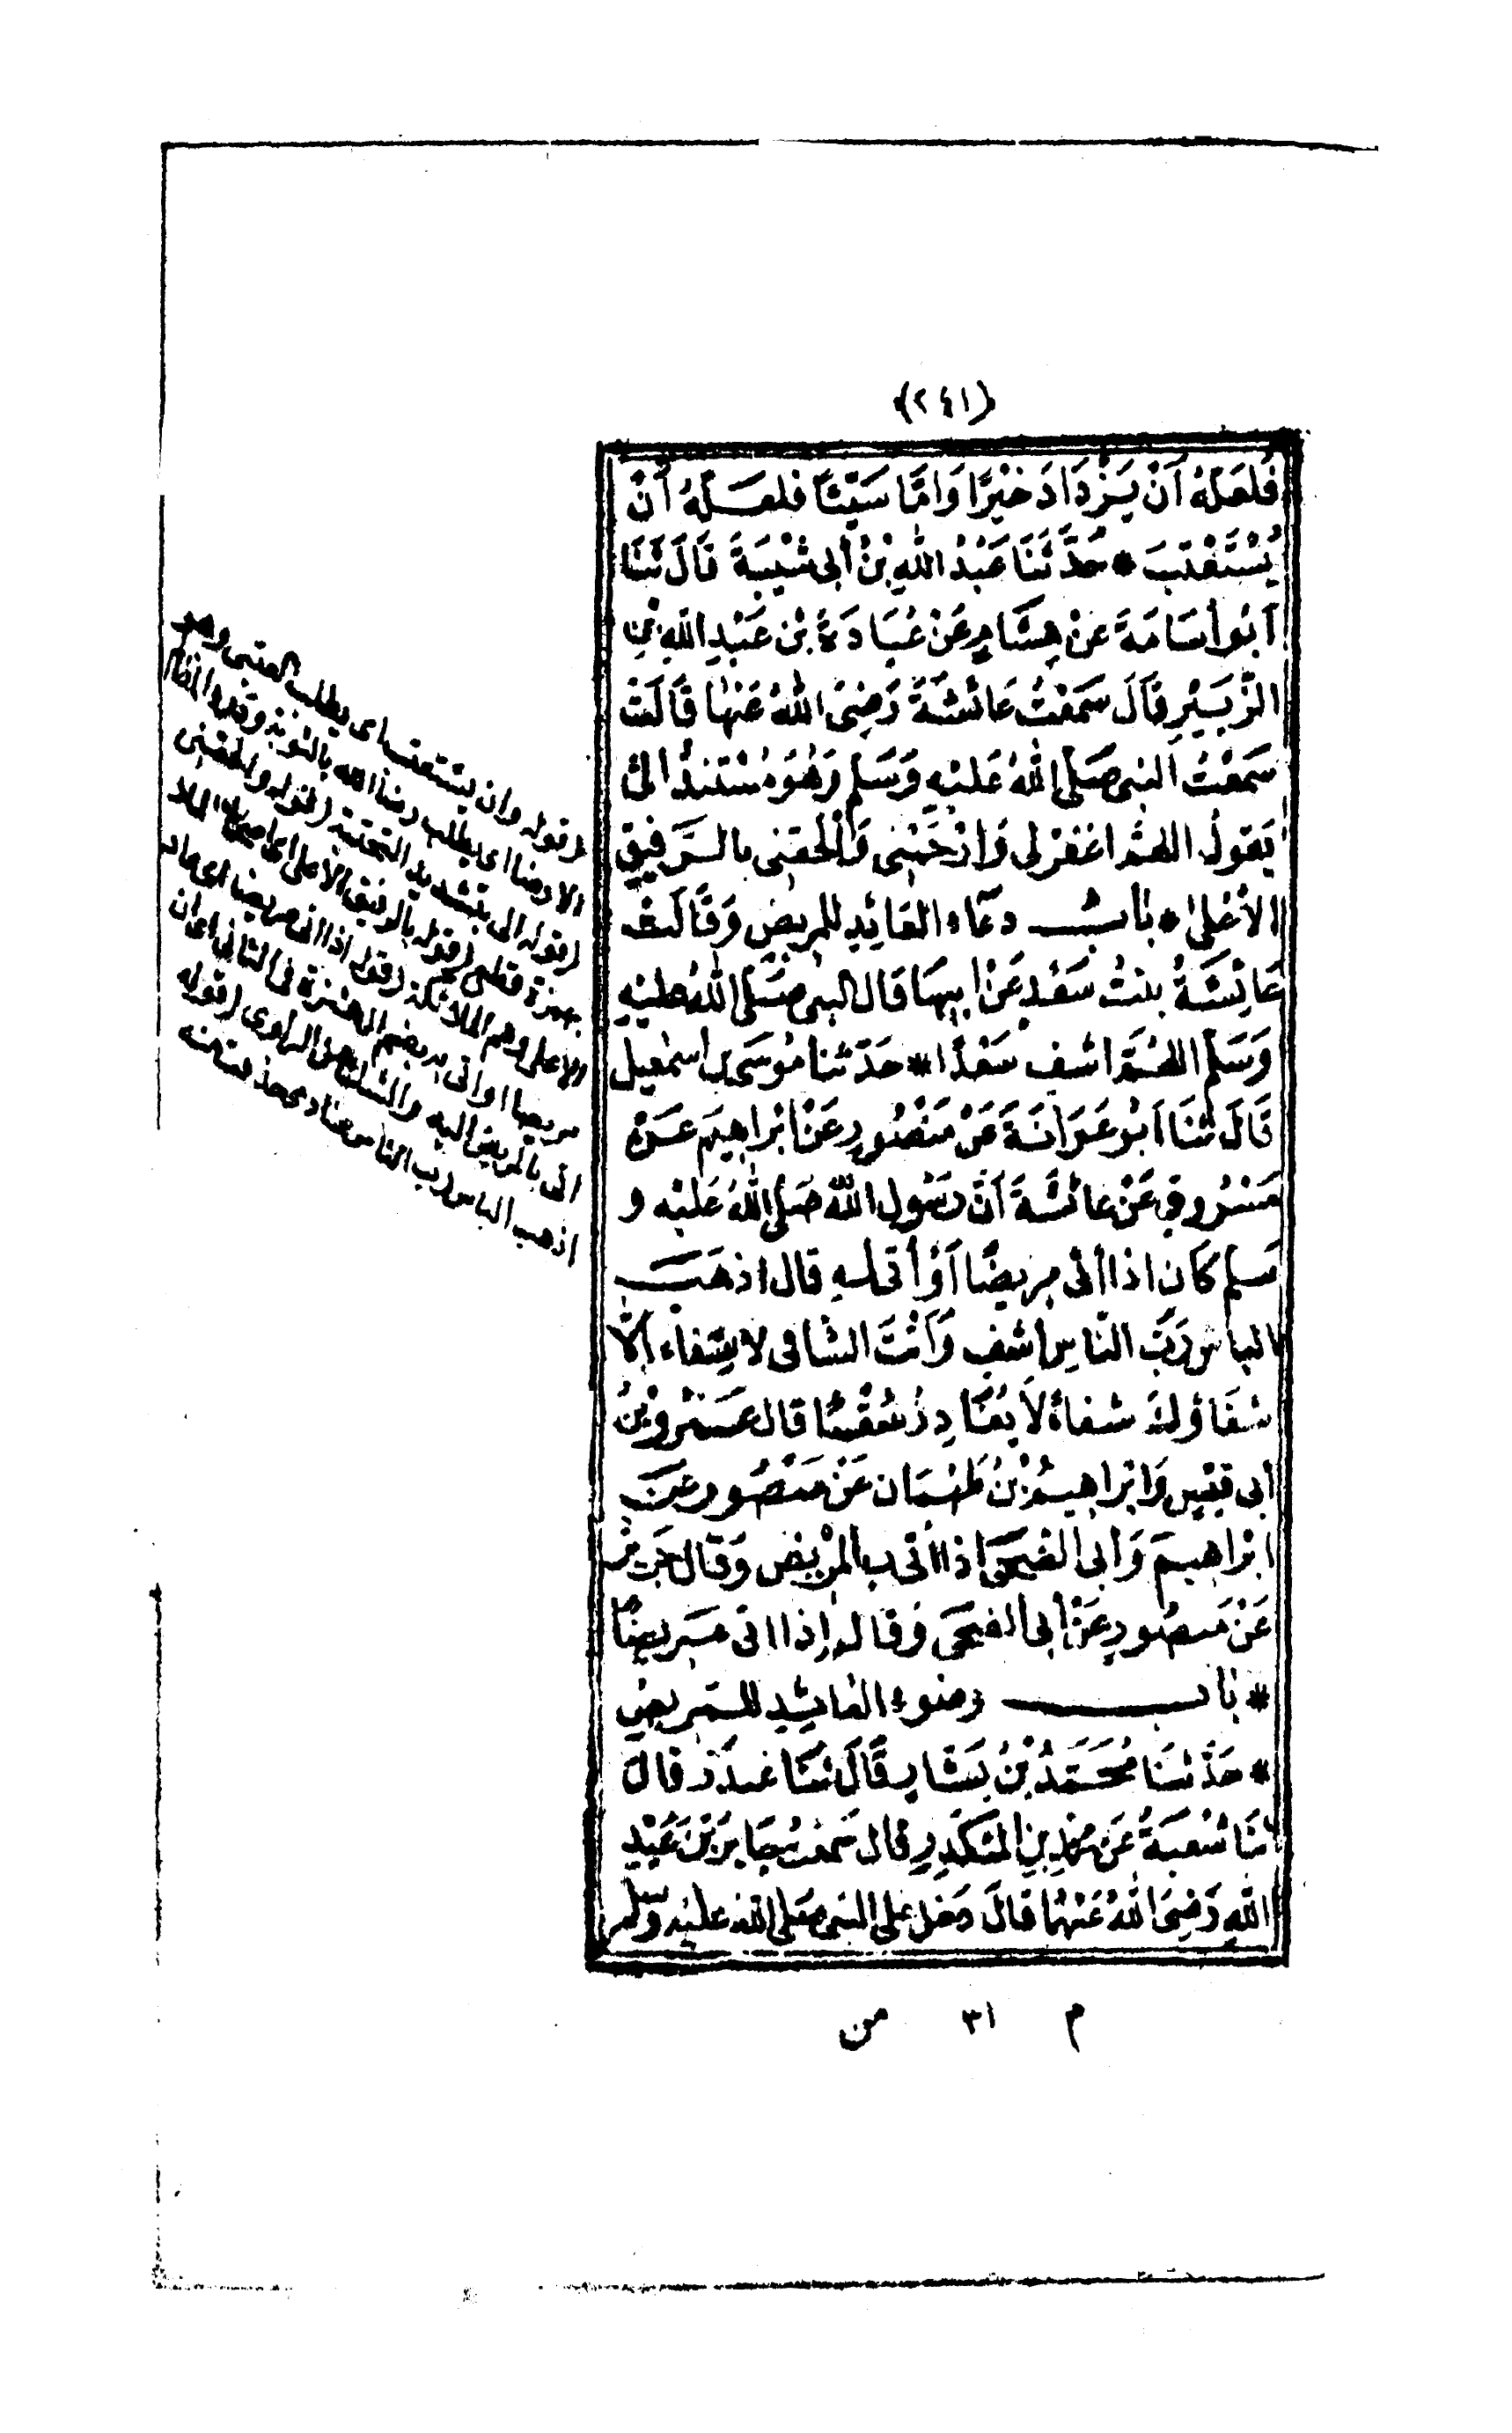 ﴿٢٤١﴾
فَلَعَلَّهُ أَنْ يَزْدَادَ خَيْرًا وَامَّا سَيِّئًا فلعَلَّهُ أَنْ
يُسْتَعْتَبَ * حَدَّثَنَا عَبْدُ اللهِ بْنُ أبى شَيْبَةَ قَالَ ثَنَا
أَبُو أُسَامَةَ عَنْ هِشَامٍ عَنْ عُبَادَةَ بْن عَبْدِ اللهِ بْنِ
الزُّبَيْرِ قَالَ سَمَعْتُ عَائشَةَ رَضِىَ اللهُ عَنْهَا قَالَتْ
سَمَعْتُ النبى صَلى اللهُ عَلَيْهِ وَسَلم وَهُوَ مُسْتَنِدٌ الىَّ
يَقولُ اللهُمَّ اغفرْ لى وَارْحَمْنِى وَأَلْحِقنِى بالرَّفيقِ
الأعْلى * بابُ دعَاء العَائِدِ للمريضِ وَقَالَتْ
عَائِشَةُ بنتُ سَعْدٍ عَنْ ابيهَا قَال النبى صَلى اللهُ عليْهِ
وَسَلم اللهُمَّ اشفِ سَعْدًا * حَدّثنا مُوسَى بن اسمٰعيل
قَالَ ثنَا أَبُو عَوَانَةَ عَنْ مَنْصُورٍ عَنْ ابْرَاهِيمَ عَنْ
مَسْرُوقٍ عَنْ عائشَةَ أَنَّ رَسُول اللهِ صَلى اللهُ عَليْه و
سَلم كَان اذا أتى مريضًا أَوْ أتى به قال اذهَب
الباس رَبَّ النَّاسِ اشفِ وَأَنْتَ الشافى لا شِفاء الَّا
شفَاؤكَ شفاءً لاَ يُغَادِرُ سَقْمًا قال عَمْرُو بْنُ
أبى قيْسٍ وَابْرَاهيمُ بْنُ طَهْمَان عَنْ مَنْصُور عَن
ابْرَاهيمَ وَأبى الضُّحَى اذا أتى بالمَرْيض وَقال جَرِيرٌ
عَنْ مَنصُورٍ عَنْ أبى الضحَى وَقال إذا اتى مَريضًا
* باب وضوء العائِدِ للمَريضِ
* حَدّثنَا مُحَمَّدُ بْنُ بَشار قَالَ ثنَا غندَر قال
ثنَا شُعْبَةُ عَن محمدِ بنِ المنكَدِرِ قال سَمعت جَابرَ بْنَ عَبْدِ
اللهِ رَضِىَ اللهُ عَنْهُمَا قالَ دَخل على النبى صَلى اللهُ عليْه وسلم
م ٣١ من
(قوله وان يستعتب) اى يطلب العتبى وهو
الارضا اى يطلب رضا الله بالتوبة ورد المظالم
(قوله الى) بتشديد التحتية (قوله والحقنى)
بهمزة قطع (قوله بالرفيق الاعلى) اى الملا
الاعلى وهم الملائكة (قوله اذا اتى مريضا) اى عاد
مريضا او اتى به بضم الهمزة فى الثانى اى ان
اتى بالمريض اليه والشك من الراوى (قوله
اذهب الباس رب الناس) منادى حذفت منه